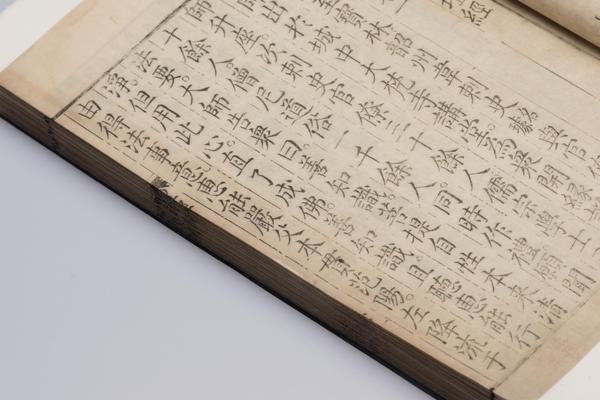 壇經
至寶林韶州韋刺史名璩與官
出於城中大梵寺講堂為衆開緣
師升座。次刺史官僚三十餘人儒宗學士
十餘人。僧尼道俗一千餘人。同時作禮願聞
法要。大師告衆曰善知識。菩提自性本來清
淨。但用此心。直了成佛。善知識。且聽惠能行
由得法事意惠能嚴父本貫范陽。左降流于